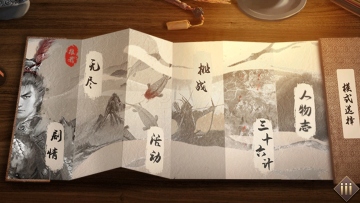 剧情
无尽
活动
挑战
三十六计
人物志
模式选择